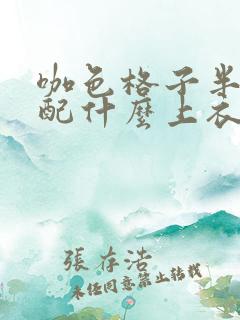 咖色格子半
配什麼上衣
張存浩
未经同意禁止转载